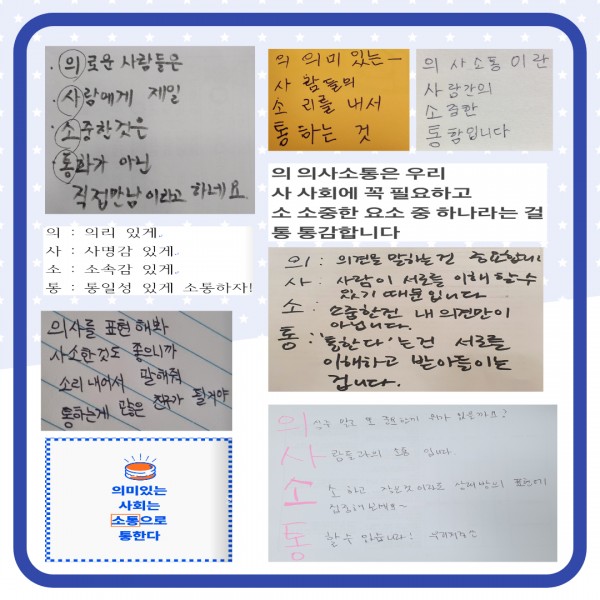 · 의로운 사람들은
· 사람에게 제일
· 소중한것은
· 통화가 아닌
직접만남이라고 하네요
의 의미 있는
사 람들의
소 리를 내서
통 하는 것
의 사 소통 이란
사 람간의
소 중한
통 함입니다
의 의사소통은 우리
사 사회에 꼭 필요하고
소 소중한 요소 중 하나라는 걸
통 통감합니다
의 : 의리 있게..
사 : 사명감 있게..
소 : 소속감 있게..
통 : 통일성 있게 소통하자!
의 : 의견을 말하는건 중요합니
사 : 사람이 서로를 이해 할수
있기 때문입니다.
소 : 소중한건 내 의견만이
아닙니다.
통 : '통한다'는건 서로를
이해하고 받아들이는
겁니다.
의사를 표현해봐
사소한것도 좋으니까
소리내어서 말해줘
통하는게 많은 친구가 될거야
의식주 말고 또 중요한게 뭐가 있을까요?
사람들과의 소통 입니다
소 소 하고 작은것이라도 상대방의 표현에
집중해보세요~
통 할수 있습니다!
의미있는
사회는
소통으로
통한다